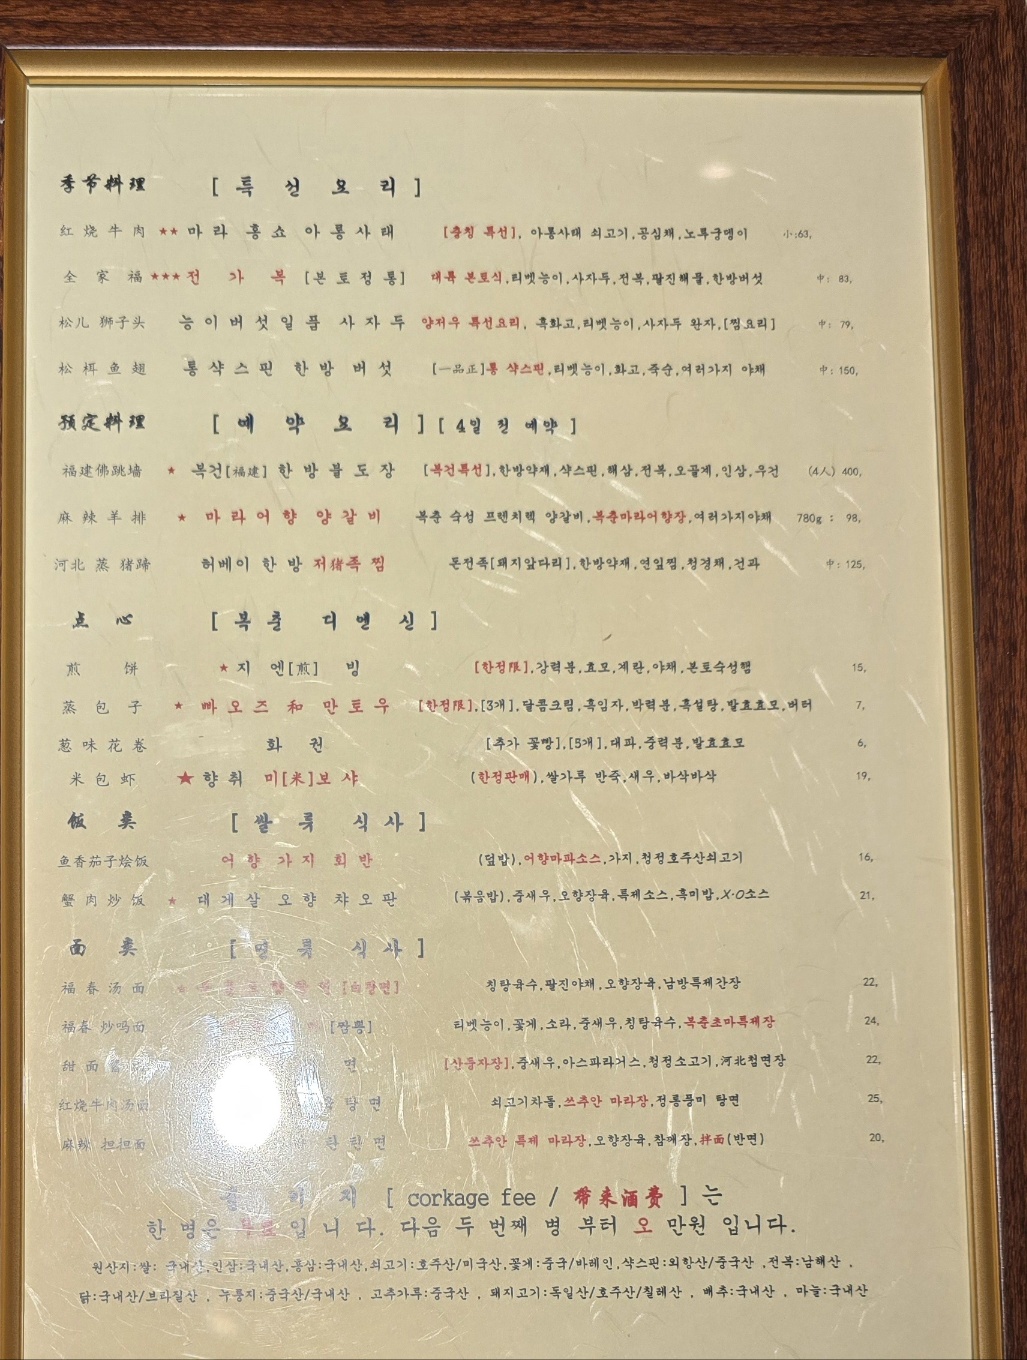 季节料理 [ 특 선 요 리 ]
红 烧 牛 肉 ★★ 마 라 홍 쇼 아 롱 사 태 [충칭 특선], 아롱사태 쇠고기,공심채,노루궁뎅이 小:63,
全 家 福 ★★★ 전 가 복 [본 토 정 통] 대륙 본토식,티벳능이,사자두,전복,팔진해물,한방버섯 中: 83,
松儿 狮子头 능 이 버 섯 일 품 사 자 두 양저우 특선요리, 흑화고,티벳능이,사자두 완자,[찜요리] 中: 79,
松 栮 鱼 翅 통 샥 스 핀 한 방 버 섯 [一品正]통 샥스핀,티벳능이,화고,죽순,여러가지 야채 中:150,
预定料理 [ 예 약 요 리 ] [ 4일 전 예약 ]
福建佛跳墙 ★ 복건[福建] 한 방 불 도 장 [복건특선],한방약재,샥스핀,해삼,전복,오골계,인삼,우건 (4人) 400,
麻 辣 羊 排 ★ 마 라 어 향 양 갈 비 복춘 숙성 프렌치렉 양갈비,복춘마라어향장,여러가지야채 780g : 98,
河北 蒸 猪蹄 허베이 한 방 저猪족 찜 돈전족[돼지앞다리],한방약재,연잎찜,청경채,건과 中:125,
点 心 [ 복 춘 디 엔 신 ]
煎 饼 ★ 지 엔[煎] 빙 [한정限],강력분,효모,계란,야채,본토숙성햄 15,
蒸 包 子 ★ 빠 오 즈 和 만 토 우 [한정限],[3개],달콤크림,흑임자,박력분,흑설탕,발효효모,버터 7,
葱 味 花 卷 화 권 [추가 꽃빵],[5개],대파,중력분,발효효모 6,
米 包 虾 ★ 향 취 미[米]보 샤 (한정판매),쌀가루 반죽,새우,바삭바삭 19,
饭 类 [ 쌀 류 식 사 ]
鱼香茄子烩饭 어 향 가 지 회 반 (덮밥),어향마파소스,가지,청정호주산쇠고기 16,
蟹 肉 炒 饭 ★ 대 게 살 오 향 챠 오 판 (볶음밥),중새우,오향장육,특제소스,흑미밥,X·O소스 21,
面 类 [ 면 류 식 사 ]
福 春 汤 面 ★ [白탕면] 칭탕육수,팔진야채,오향장육,남방특제간장 22,
福春 炒吗面 [짬뽕] 티벳능이,꽃게,소라,중새우,칭탕육수,복춘초마특제장 24,
甜 面 면 [산동자장],중새우,아스파라거스,청정소고기,河北첨면장 22,
红烧牛肉汤面 육 탕 면 쇠고기차돌,쓰추안 마라장,정통풍미 탕면 25,
麻辣 担担面 탄 탄 면 쓰추안 특제 마라장,오향장육,참깨장,拌面(반면) 20,
콜 키 지 [ corkage fee / 帶来酒费 ] 는
한 병은 무료 입 니 다. 다음 두 번째 병 부터 오 만원 입니다.
원산지:쌀: 국내산,인삼:국내산,홍삼:국내산,쇠고기:호주산/미국산,꽃게:중국/바레인,샥스핀:외항산/중국산 ,전복:남해산 ,
닭:국내산/브라질산 , 누룽지:중국산/국내산 , 고추가루:중국산 , 돼지고기:독일산/호주산/칠레산 , 배추:국내산 , 마늘:국내산